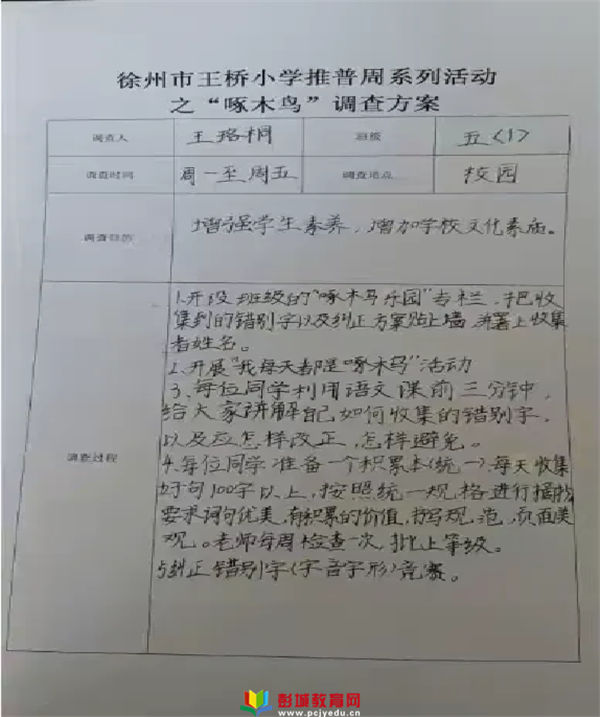 徐州市王桥小学推普周系列活动
之“啄木鸟”调查方案
调查人 王珞桐 班级 五<1>
调查时间 周一至周五 调查地点 校园
调查目的 增强学生素养，增加学校文化素质。
1.开设班级的“啄木鸟乐园”专栏，把收
集到的错别字以及纠正方案贴上墙，并署上收集
者姓名。
2.开展“我每天都是啄木鸟”活动
3、每位同学利用语文课前三分钟，
给大家讲解自己如何收集的错别字，
以及应怎样改正，怎样避免。
调查过程
4、每位同学准备一个积累本(统一)每天收集
好句100字以上，按照统一规格进行摘抄
要求词句优美，有积累的价值，书写规范，页面美
观。老师每周检查一次，批上等级。
5纠正错别字(字音字形)竞赛。
彭城教育网
www.pcjyedu.cn